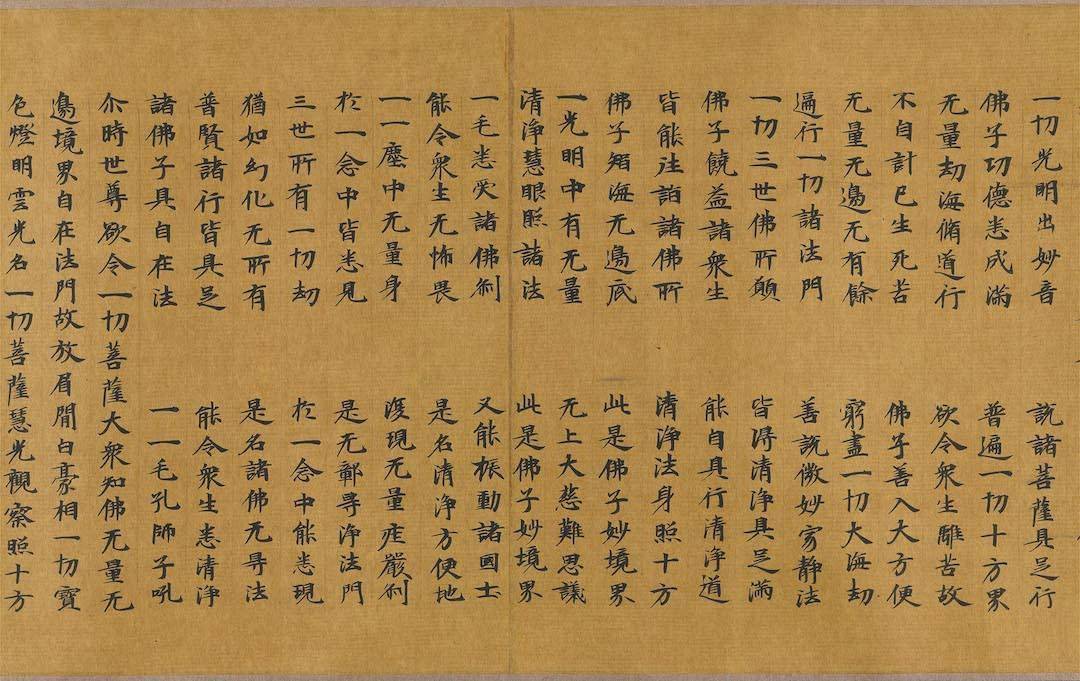 一切光明出妙音 說諸菩薩具足行
佛子功德悉成滿 普遍一切十方界
无量劫海脩道行 欲令衆生離苦故
不自計已生死苦 佛子善入大方便
无量无邊无有餘 窮盡一切大海劫
遍行一切諸法門 善說微妙寂靜法
一切三世佛所願 皆得清淨具足滿
佛子饒益諸衆生 能自具行清淨道
皆能往詣諸佛所 清淨法身照十方
佛子智海无邊底 此是佛子妙境界
一光明中有无量 无上大慈難思議
清淨慧眼照諸法 此是佛子妙境界
一毛悉受諸佛刹 又能振動諸國土
能令衆生无怖畏 是名清淨方便地
一一塵中无量身 復現无量莊嚴刹
於一念中皆悉見 是无鄣㝵淨法門
三世所有一切劫 於一念中能悉現
猶如幻化无所有 是名諸佛无㝵法
普賢諸行皆具足 能令衆生悉清淨
諸佛子具自在法 一一毛孔師子吼
尒時世尊欲令一切菩薩大衆知佛无量无
邊境界自在法門故放眉間白豪相一切寶
色燈明雲光名一切菩薩慧光觀察照十方